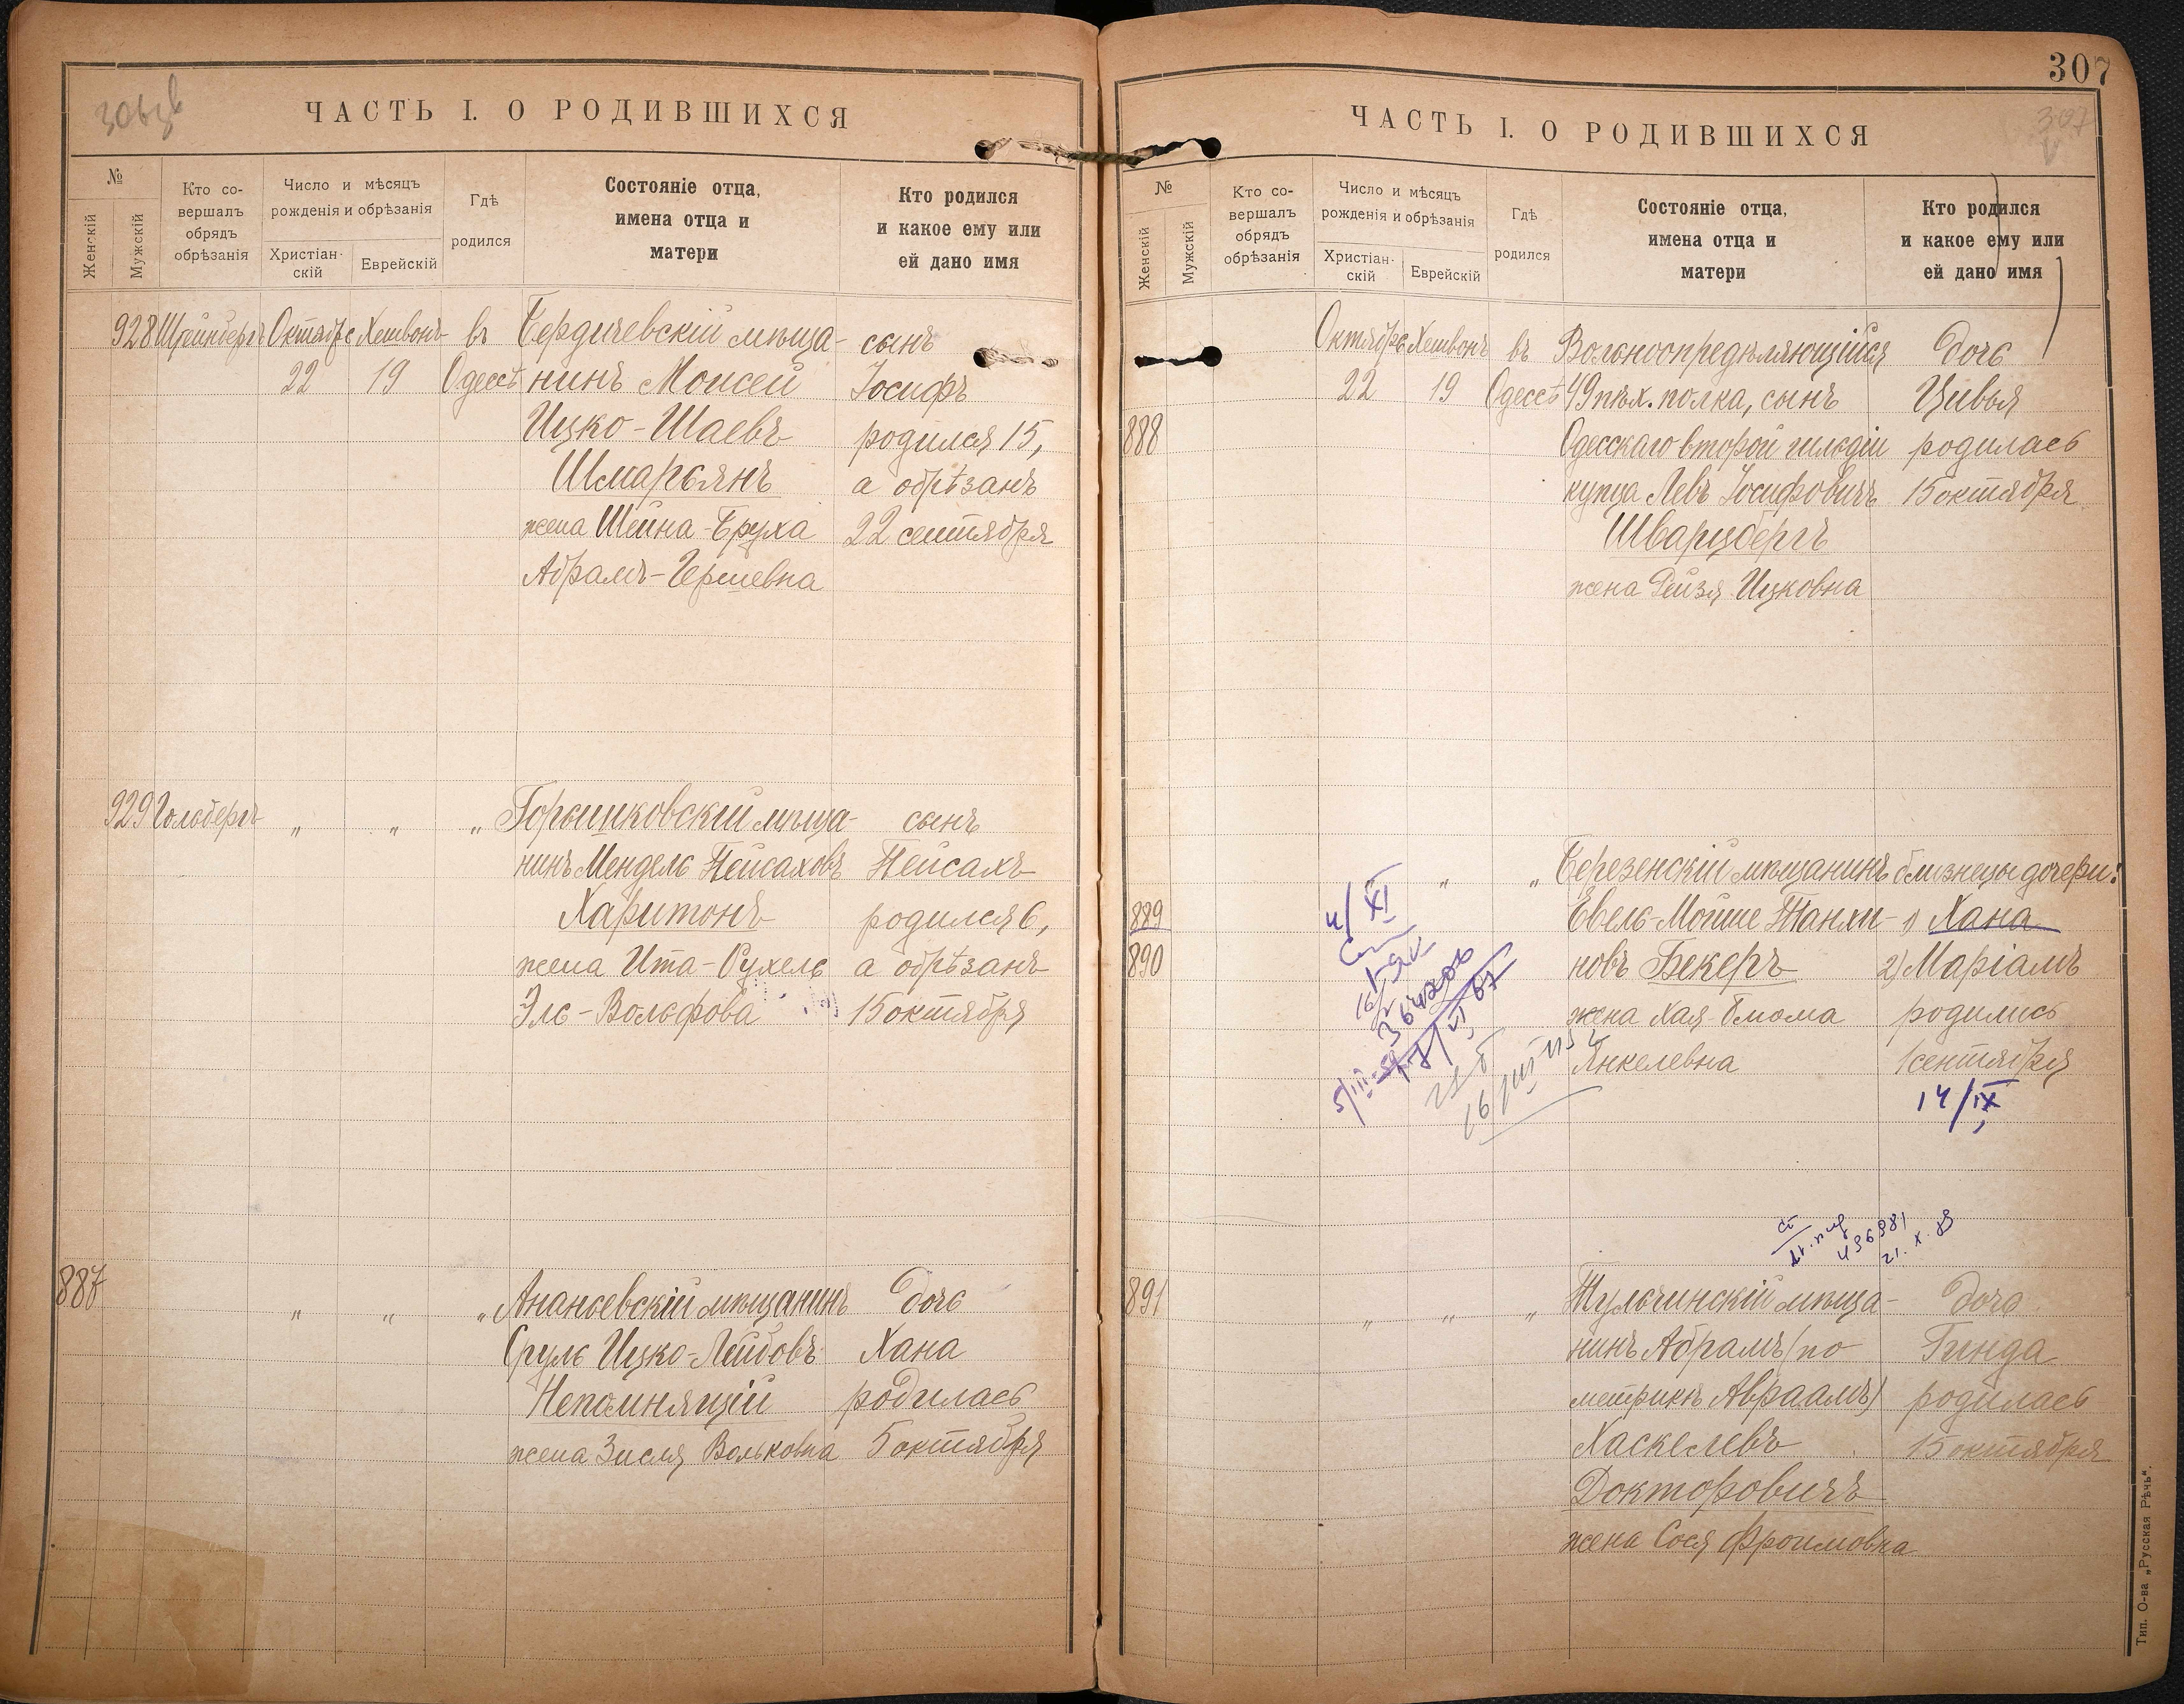 ЧАСТЬ I. О РОДИВШИХСЯ
№
Женскій
Мужскій
Кто со-
вершалъ
обрядъ
обрѣзанія
Число и мѣсяцъ
рожденія и обрѣзанія
Христіан-
скій
Еврейскій
Гдѣ
родился
Состояніе отца,
имена отца и
матери
Кто родился
и какое ему или
ей дано имя
928 Штейнбергъ Октябрь Хешвонъ въ Бердичевскій мѣща- сынъ
22 19 Одессѣ нинъ Моисей Іосифъ
Ицко-Шаевъ родился 15,
Шмарьянъ а обрѣзанъ
жена Шейна-Бруха 22 сентября
Абрамъ-Гершевна
929 Гольбергъ " " " Горышковскій мѣща- сынъ
нинъ Мендель Пейсаховъ Пейсахъ
Харитонъ родился 6,
жена Ита-Рухель а обрѣзанъ
Эль-Вольфова 15 октября
887 " " " Ананьевскій мѣщанинъ дочь
Сруль Ицко-Лейбовъ Хана
Непомнящій родилась
жена Зисля Вольковна 5 октября
307
307
ЧАСТЬ I. О РОДИВШИХСЯ
№
Женскій
Мужскій
Кто со-
вершалъ
обрядъ
обрѣзанія
Число и мѣсяцъ
рожденія и обрѣзанія
Христіан-
скій
Еврейскій
Гдѣ
родился
Состояніе отца,
имена отца и
матери
Кто родился
и какое ему или
ей дано имя
Октябрь Хешвонъ въ Вольноопредѣляющійся дочь
22 19 Одессѣ 49 пѣх. полка, сынъ Цивья
888 Одесскаго второй гильдіи родилась
купца Левъ Іосифовичъ 15 октября
Шварцбергъ
жена Рейзя Ицковна
" " Березенскій мѣщанинъ близнецы дочери:
889 Евель-Мойше Танхи- 1) Хана
890 новъ Бекеръ 2) Маріамъ
жена Хая-Блюма родились
Янкелевна 1 сентября
14/IX
4/XI
16/III
436981
21. X.
891 " " " Тульчинскій мѣща- дочь
нинъ Абрамъ (по Гинда
метрикѣ Авраамъ) родилась
Хаскелевъ 15 октября
Докторовичъ
жена Сося Фроимовна
Тип. О-ва „Русская Рѣчь".